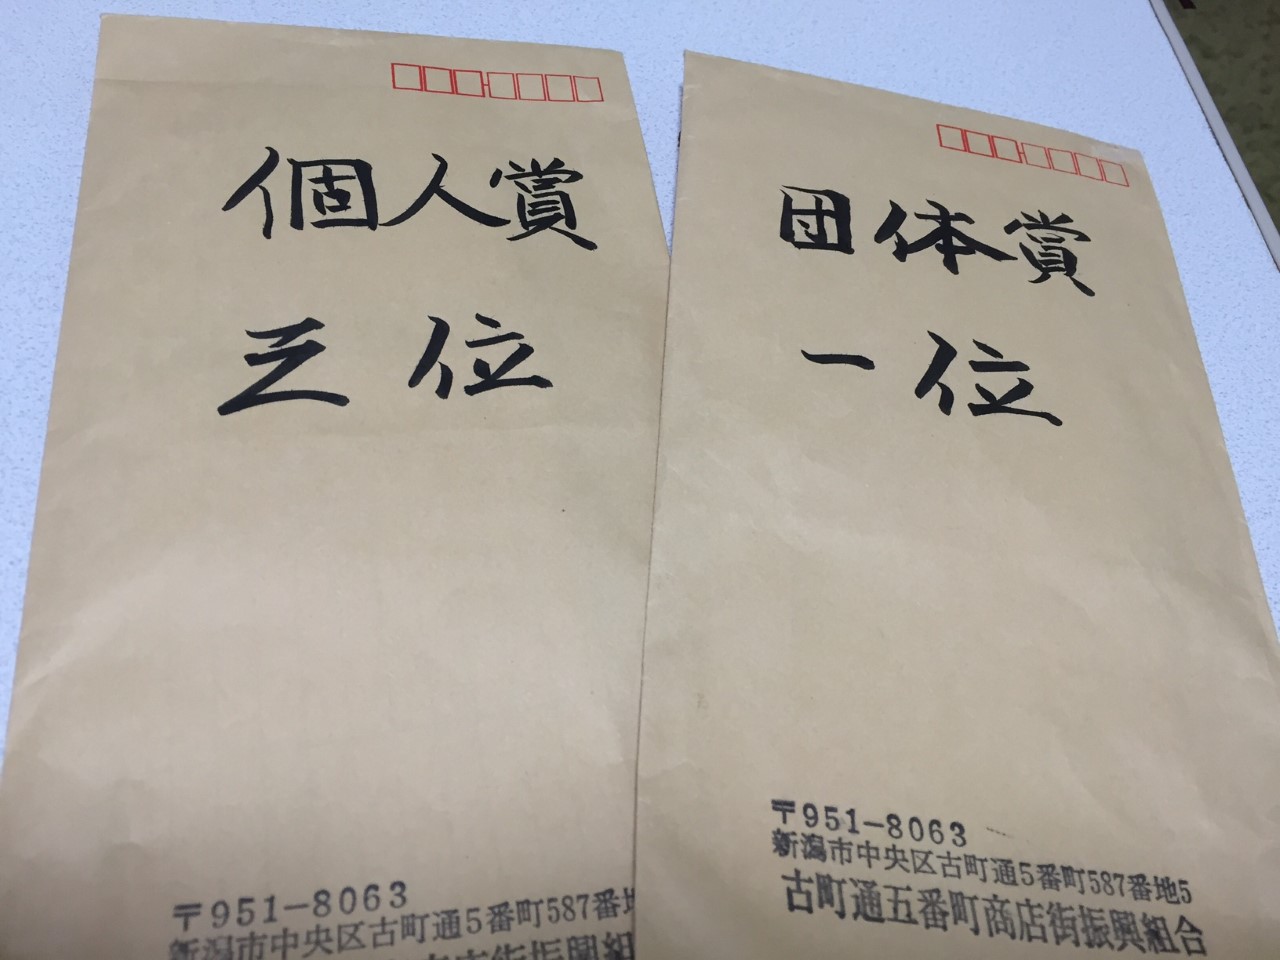 個人賞
三位
〒951-8063
新潟市中央区古町通5番町587番地
店街振興組
団体賞
一位
〒951-8063
新潟市中央区古町通5番町587番地5
古町通五番町商店街振興組合